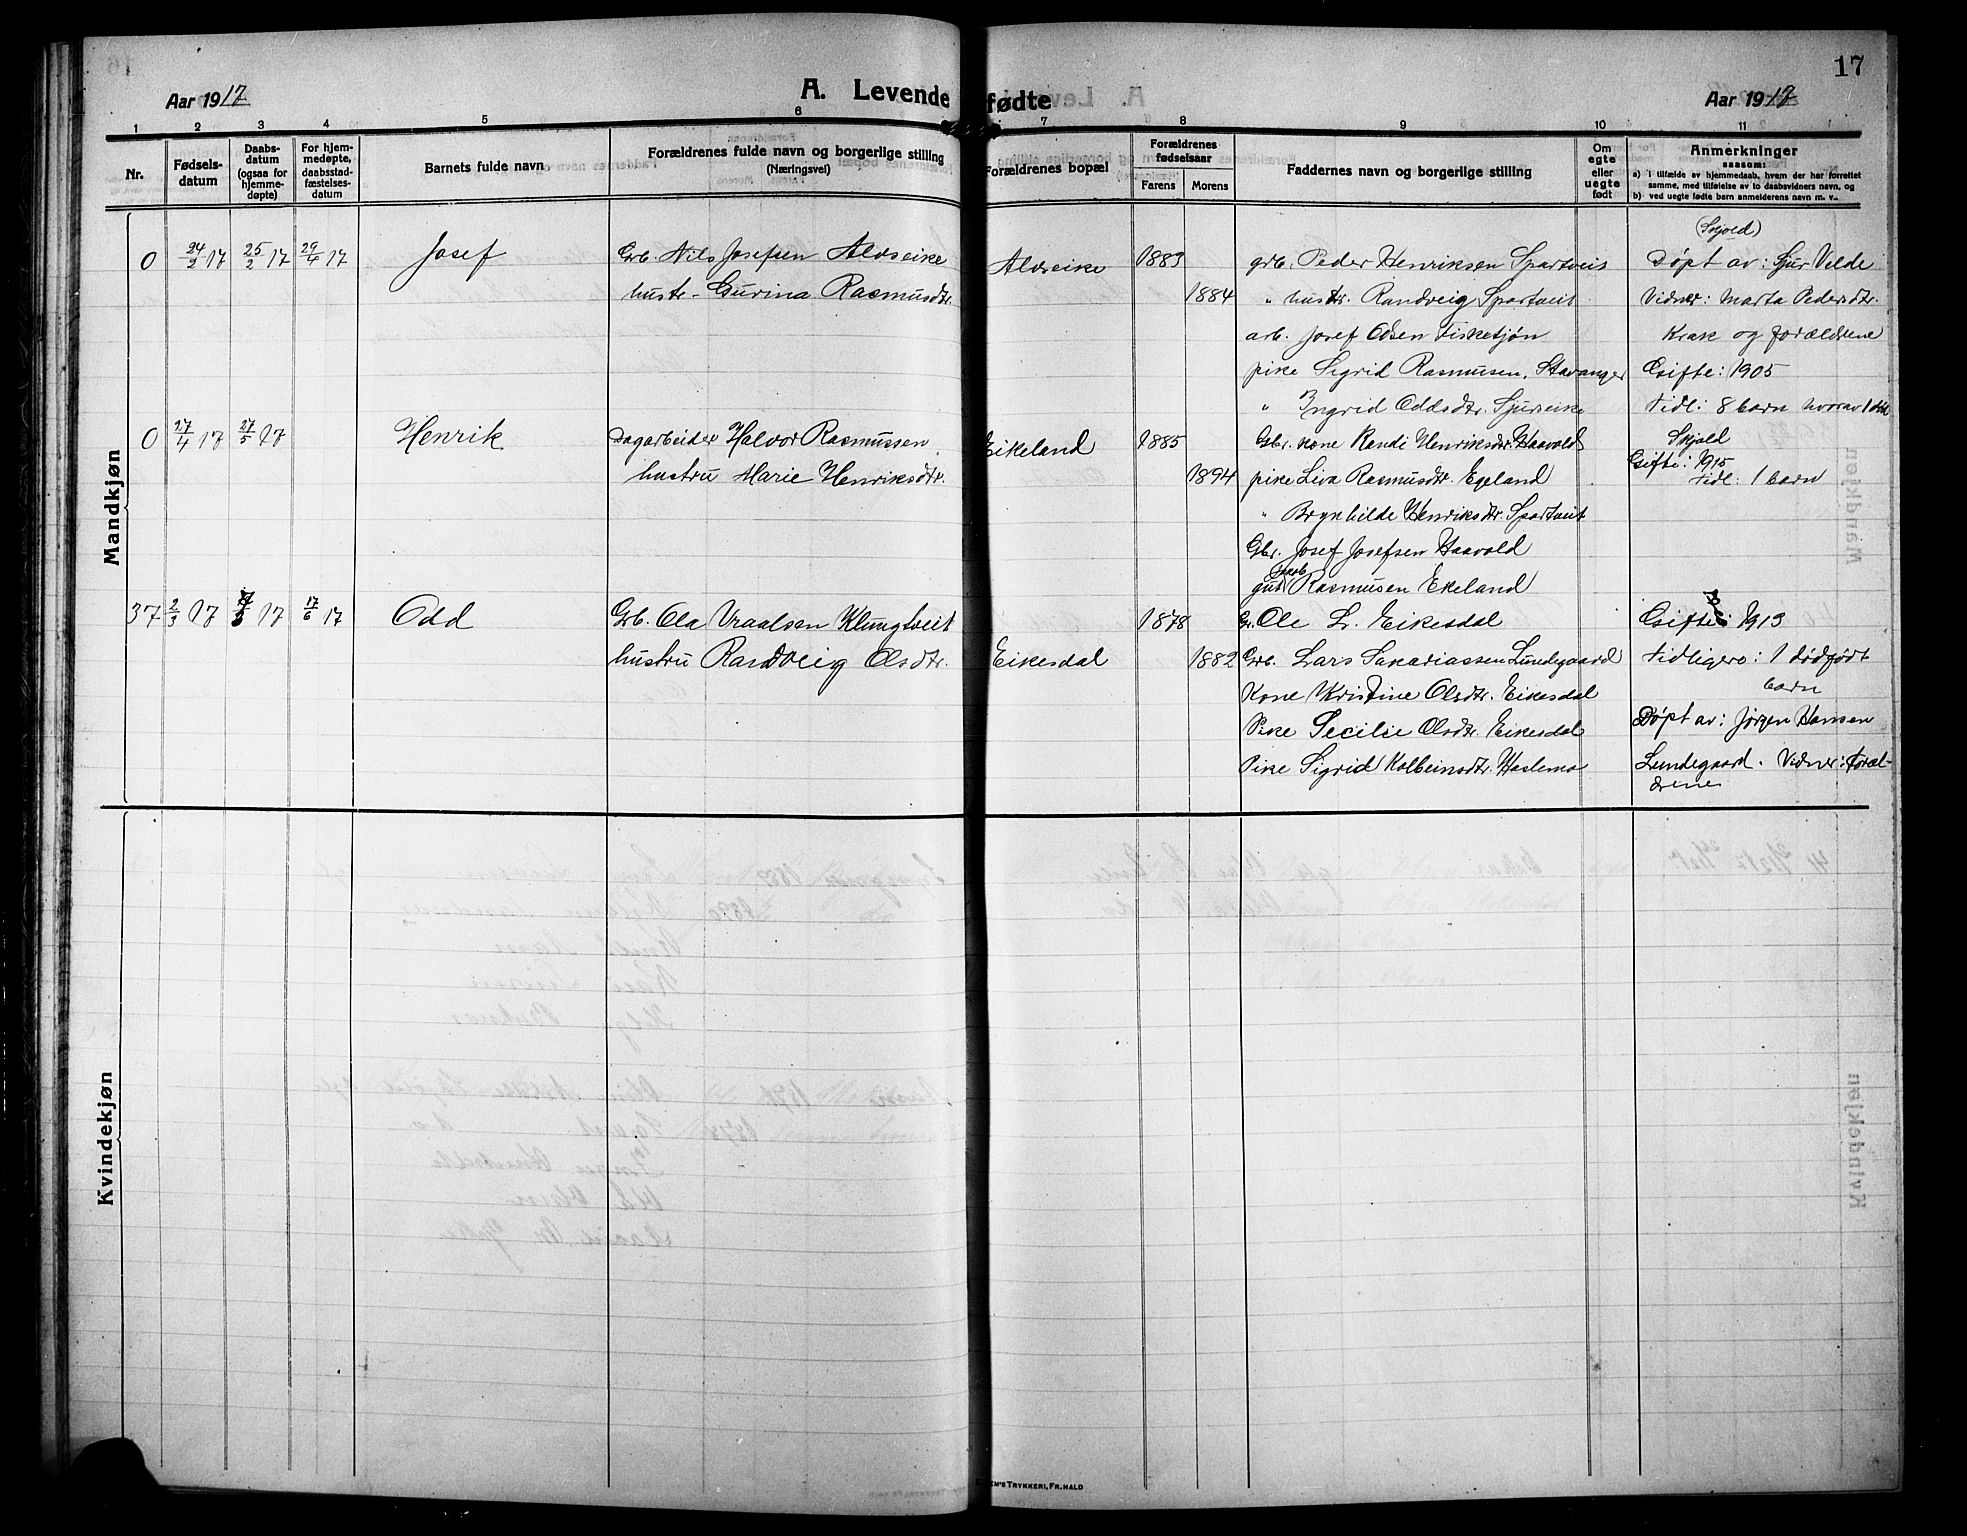 17
Aar 1917
A. Levende fødte
Aar 1917
1 2 3 4 5 6 7 8 9 10 11
Nr.
Fødsels-
datum
Daabs-
datum
(ogsaa for
hjemme-
døpte)
For hjem-
medøpte,
daabsstad-
fæstelses-
datum
Barnets fulde navn
Forældrenes fulde navn og borgerlige stilling
(Næringsvei)
Forældrenes bopæl
Forældrenes
fødselsaar
Farens Morens
Faddernes navn og borgerlige stilling
Om
egte
eller
uegte
født
Anmerkninger
saasom:
a) i tilfælde av hjemmedaab, hvem der har forrettet
samme, med tilføielse av to daabsvidners navn, og
b) ved uegte fødte barn anmelderens navn m. v..
Mandkjøn
0 24/2 17 25/2 17 29/4 17 Josef
Grb. Nils Josefsen Aldseike
hustr. Gurina Rasmusdtr.
Aldseike
1883
1884
grb. Peder Henriksen Spartveit
" hustr. Randveig Spartveit
arb. Josef Odsen Fisketjøn
pike Sigrid Rasmusen, Stavanger
" Ingrid Oddsdtr. Sjurseike
(Skjold)
Døpt av: Sjur Velde
Vidner: Marta Pedersdtr.
Krak og forældrene
Gifte: 1905
Tidl: 8 barn hvorav 1 død
0 27/4 17 27/5 17 Henrik
Dagarbeider Halvor Rasmussen
hustru Marie Henriksdtr.
Eikeland
1885
1894
Gbr. kone Randi Henriksdtr. Haavold
pike Liva Rasmusdtr. Egeland
" Brynhilde Henriksdtr. Spartveit
Gbr. Josef Josefsen Haavold
Jakob
gut Rasmusen Ekeland
Skjold
Gifte: 1915
Tidl: 1 barn
37 2/3 17 17 17/6 17 Odd
Grb. Ola Vraalsen Klungtveit
hustru Randveig Olsdtr.
Eikesdal
1878
1882
Gr. Ole L. Eikesdal
Grb. Lars Sakariassen Lundegaard
Kone Kristine Olsdtr. Eikesdal
Pike Secilie Olsdtr. Eikesdal
Pike Sigrid Kolbeinsdtr. Haslemo
Gifte: 1913
Tidligere: 1 dødfødt
barn
Døpt av: Jörgen Hansen
Lundegaard. Vidner: Foræl-
drene
Kvindekjøn
TRYKKERI, FR. HALD